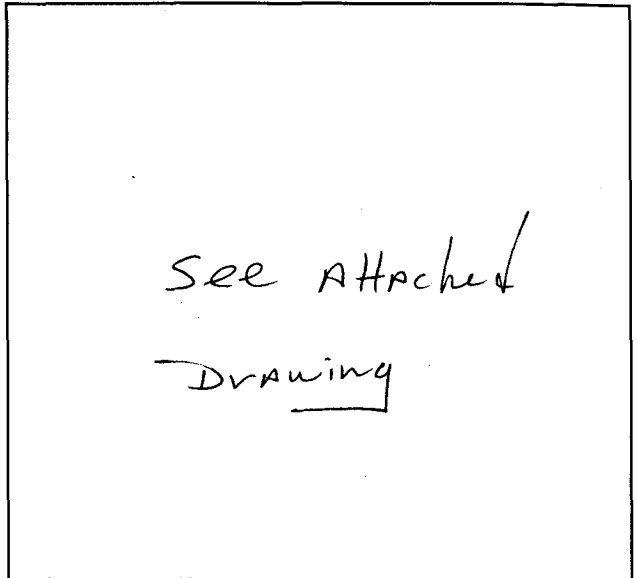 See Attached
Drawing